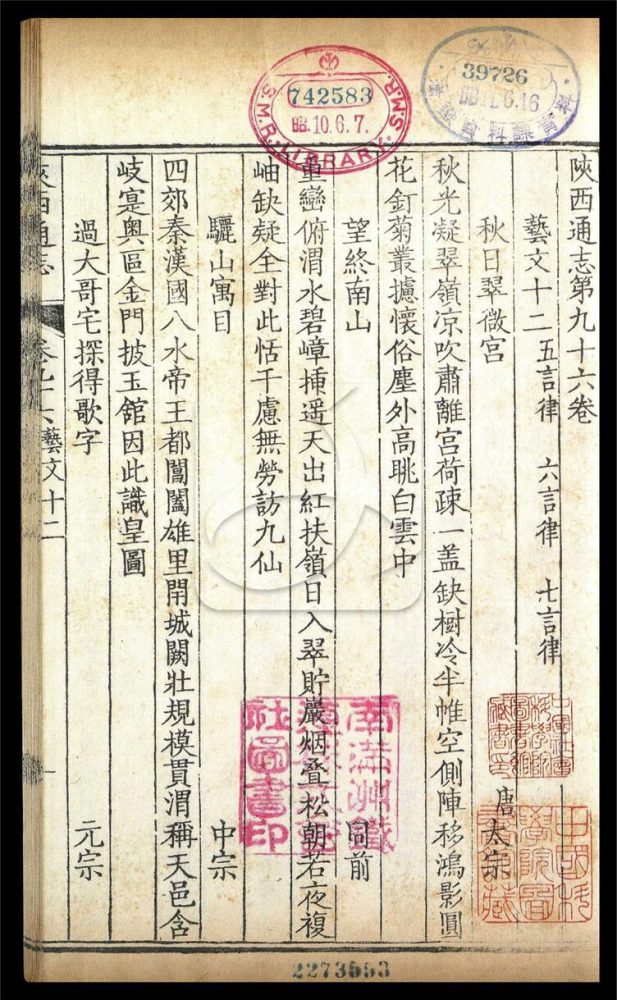 S.M.R. LIBRARY S.M.R.
742583
昭.10.6.7.
39726
陝西通志第九十六卷
藝文十二 五言律 六言律 七言律
秋日翠微宮 唐太宗
秋光凝翠嶺凉吹肅離宮荷疎一盖缺樹冷半帷空側陣移鴻影圓
花釘菊叢攄懷俗塵外高眺白雲中
望終南山 同前
重巒俯渭水碧嶂揷遥天出紅扶嶺日入翠貯巖烟叠松朝若夜複
岫缺疑全對此恬千慮無勞訪九仙
驪山寓目 中宗
四郊秦漢國八水帝王都閶闔雄里閈城闕壯規模貫渭稱天邑含
岐寔奥區金門披玉舘因此識皇圖
過大哥宅探得歌字 元宗
陝西通志 卷九十六藝文十二
2273553